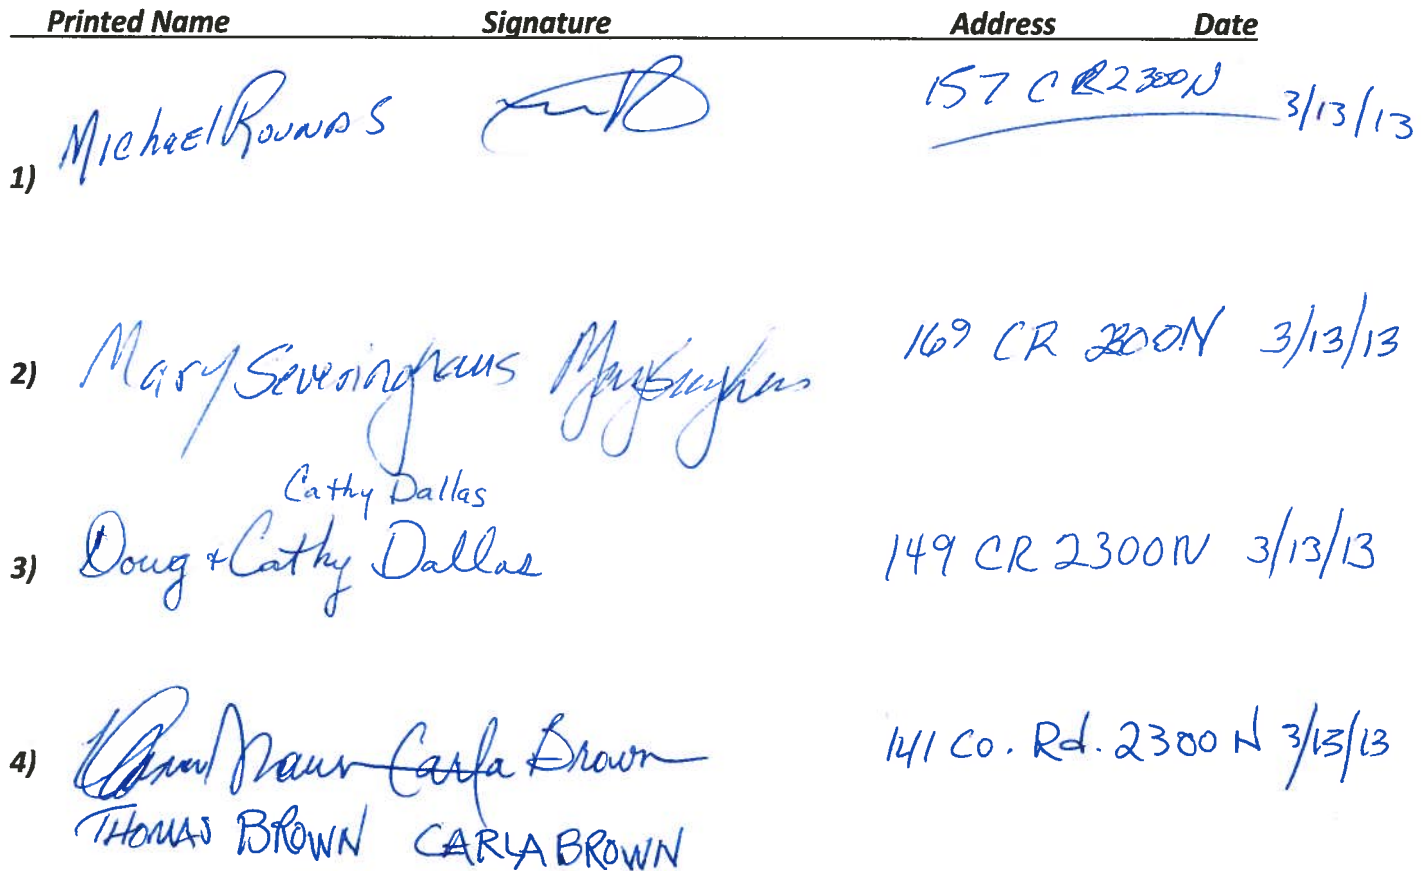 Printed Name Signature Address Date
1) Michael Rounds 157 CR 2300N 3/13/13
2) Mary Severinghaus Mary Severinghaus 169 CR 2300N 3/13/13
Cathy Dallas
3) Doug + Cathy Dallas 149 CR 2300N 3/13/13
4) Carla Brown 141 Co. Rd. 2300 N 3/13/13
THOMAS BROWN CARLA BROWN